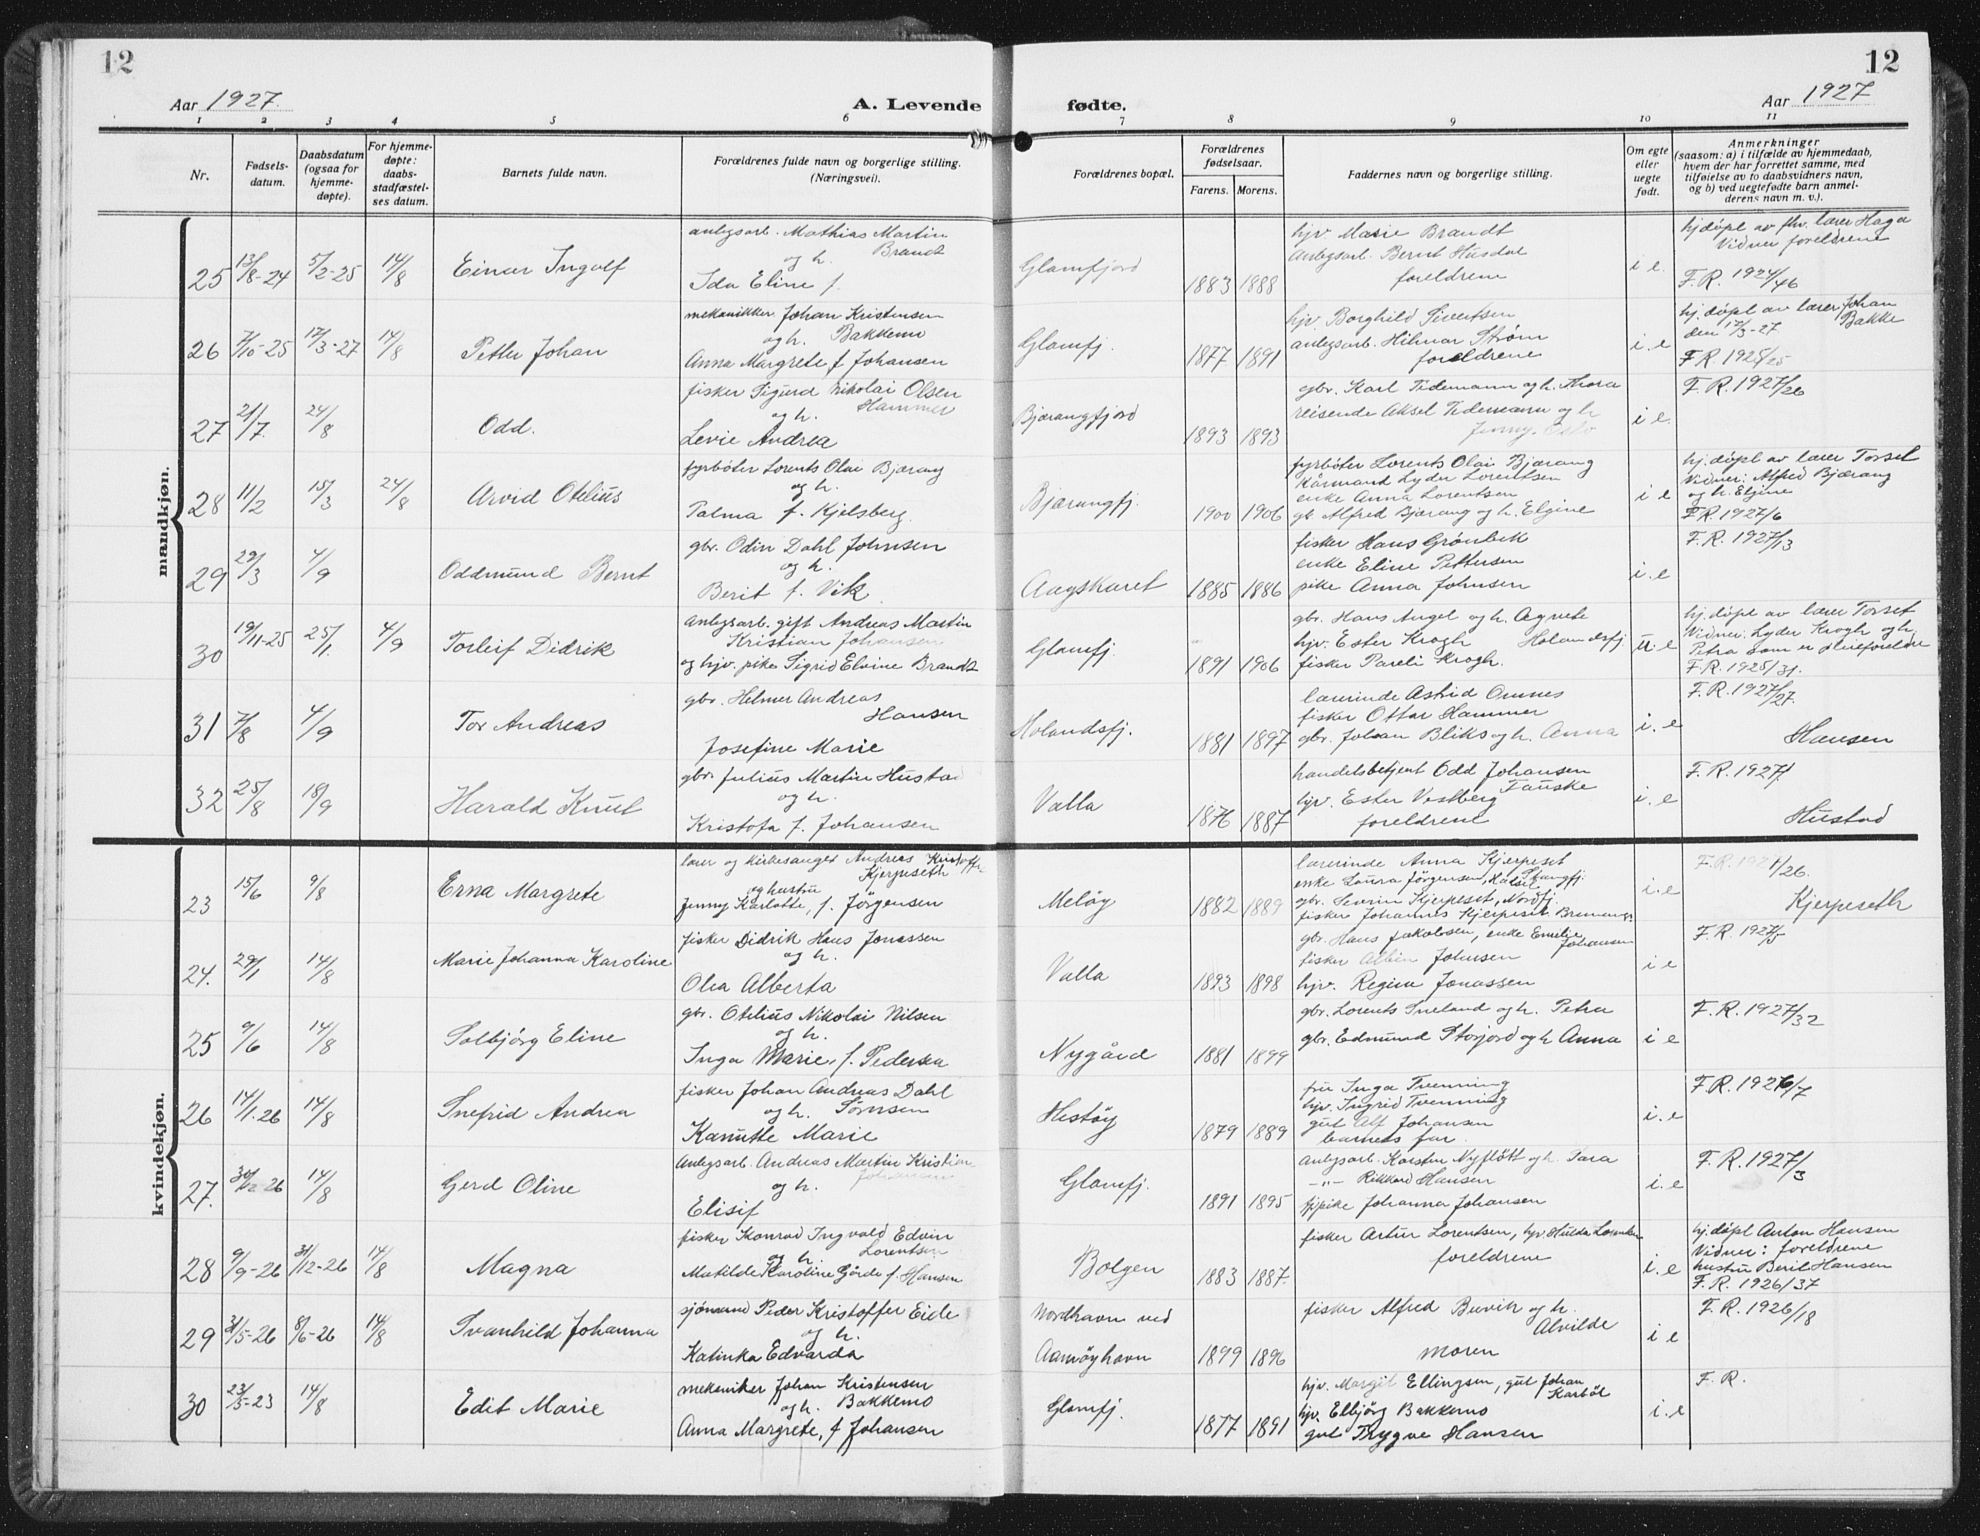 12
12
Aar 1927.
A. Levende fødte.
Aar 1927
1 2 3 4 5 6 7 8 9 10 11
Nr.
Fødsels-
datum.
Daabsdatum
(ogsaa for
hjemme-
døpte).
For hjemme-
døpte:
daabs-
stadfæstel-
ses datum.
Barnets fulde navn.
Forældrenes fulde navn og borgerlige stilling.
(Næringsvei).
Forældrenes bopæl.
Forældrenes
fødselsaar.
Farens. Morens.
Faddernes navn og borgerlige stilling.
Om egte
eller
uegte
født.
Anmerkninger
(saasom: a) i tilfælde av hjemmedaab,
hvem der har forrettet samme, med
tilføielse av to daabsvidners navn,
og b) ved uegtefødte barn anmel-
derens navn m. v.).
mandkjøn.
25 13/8-24 5/2-25 14/8 Einar Ingolf
anlegsarb. Mathias Martin
Brandt
og h.
Ida Eline f.
Glomfjord 1883 1888
hjv. Marie Brandt
anlegsarb. Bernt Husdal
foreldrene
i e.
hj.døpt av fhv. lærer Haga
Vidner foreldrene
F.R. 1924/46
26 7/10-25 17/3-27 14/8 Petter Johan
mekanikker Johan Kristensen
og h. Bakkemo
Anna Margrete f Johansen
Glomfj. 1877 1891
hjv. Borghild Sivertsen
anlegsarb. Hilmar Strøm
foreldrene
i. e
hj. døpt av lærer Johan
Bakke
den 17/3-27
F.R. 1925/25
27 21/7. 24/8 Odd.
fisker Sigurd Nikolai Olsen
Hammer
og h.
Levie Andrea
Bjærangfjord 1893 1893
gbr. Karl Tidemann og h. Thora
reisende Aksel Tidemann og h
Jenny. Oslo
i e.
F.R. 1927/26
28 11/2 15/3 24/8 Arvid Otelius
fyrbøter Lorents Olai Bjærang
og h.
Palma f. Kjelsberg.
Bjærangfj. 1900 1906
fyrbøter Lorents Olai Bjærang
Kårmand Lyder Lorentsen
enke Anna Lorentsen
gb. Alfred Bjærang og h. Elgine
i e
hj. døpt av lærer Torset
Vidner: Alfred Bjærang
og h. Elgine
F.R. 1927/6
29 29/3 4/9 Oddmund Bernt
gbr. Odin Dahl Johnsen
og h.
Berit f. Vik
Aagskaret 1885 1886
fisker Hans Grønbek
enke Eline Pettersen
pike Anna Johnsen
i. e
F.R. 1927/13
30 19/11-25 25/1. 4/9 Torleif Didrik
anlegsarb. gift Andreas Martin
Kristian Johansen
og hjv. pike Sigrid Elvine Brandt
Glomfj. 1891 1906
gbr. Hans Angel og h. Agnete
hjv. Ester Krogh Holandsfj.
fisker Pareli Krogh.
u. e
hj. døpt av lærer Torset
Vidner: Lyder Krogh og h.
Petra som er pleieforeldre
F.R. 1925/31.
31 7/8 4/9 Tor Andreas
gbr. Helmer Andreas
Hansen
Josefine Marie
Holandsfj. 1881 1897
lærerinde Astrid Omnes
fisker Ottar Hammer
gbr. Johan Bliks og h. Anna
i. e
F.R. 1927/27.
Hansen
32 25/8 18/9 Harald Knut
gbr. Julius Martin Hustad
og h.
Kristofa f. Johansen
Valla 1876 1887
handelsbetjent Odd Johansen
Fauske
hjv. Ester Vestberg
foreldrene
i. e
F.R. 1927/
Hustad
kvindekjøn.
23 15/6 9/8 Erna Margrete
lærer og kirkesanger Andreas Kristoffer
Kjerpeseth
og hustru
Jenny Karlotte, f. Jörgensen
Meløy 1882 1889
lærerinde Anna Kjerpeset
enke Laura Jørgensen,
gbr. Severin Kjerpeset, Nordfj.
fisker Johannes Kjerpeset.
i. e
F.R. 1927/26.
Kjerpeseth
24. 29/1 14/8 Marie Johanna Karoline
fisker Didrik Hans Jonassen
og h.
Olea Alberta
Valla 1893 1898
gbr. Hans Jakobsen, enke Emelie
Johansen
fisker Albin Johnsen
hjv. Regina Jonassen
i e
F.R. 1927/5
25 9/6 14/8 Solbjörg Eline
gbr. Otelius Nikolai Nilsen
og h.
Inga Marie, f. Pedersen
Nygård 1881 1899
gbr. Lorents Sneland og h. Petra
gbr. Edmund Storjord og h Anna
i e
F.R. 1927/32
26 14/1.26 14/8 Snefrid Andrea
fisker Johan Andreas Dahl
og h. Sørnsen
Kanutte Marie
Hestöy 1879 1889
fru Inga Tvenning
hjv. Ingrid Tvenning
gut Alf Johansen
barnets far.
i. e
F.R. 1926/7
27. 30/12 26 14/8 Gerd Oline
Anlegsarb. Andreas Martin Kristian
Johansen
og h.
Elisif
Glomfj. 1891 1895
anlegsarb. Karsten Nyfløtt og h. Tara
—"— Rikkard Hansen
pike Johanna Johansen
i. e
F.R. 1927/3
28 9/9-26 31/12-26 14/8 Magna
fisker Konrad Ingvald Edvin
Lorentsen
og h.
Matilde Karoline Gårde f. Hansen
Bolgen 1883 1887.
fisker Artur Lorentsen, hjv. Hulda Lorentsen
foreldrene
i. e
hj.døpt Anton Hansen
Vidner: foreldrene
hustru Beril Hansen
F.R. 1926/37
29 31/5-26 8/6-26 14/8 Svanhild Johanna
sjömand Peder Kristoffer Eide
og h.
Katinka Edvarda
Nordhavn ved
Aamøyhavn 1899 1896
fisker Alfred Buvik og h.
Alvilde
moren
i e
F.R. 1926/18
30 23/5-23 14/8 Edit Marie
mekaniker Johan Kristensen
og h. Bakkemo
Anna Margrete, f Johansen
Glomfj. 1877 1891
hjv. Margit Ellingsen, gut Johan
Karbøl
hjv. Elbjörg Bakkemo
gut Trygve Hansen
i. e
F. R.